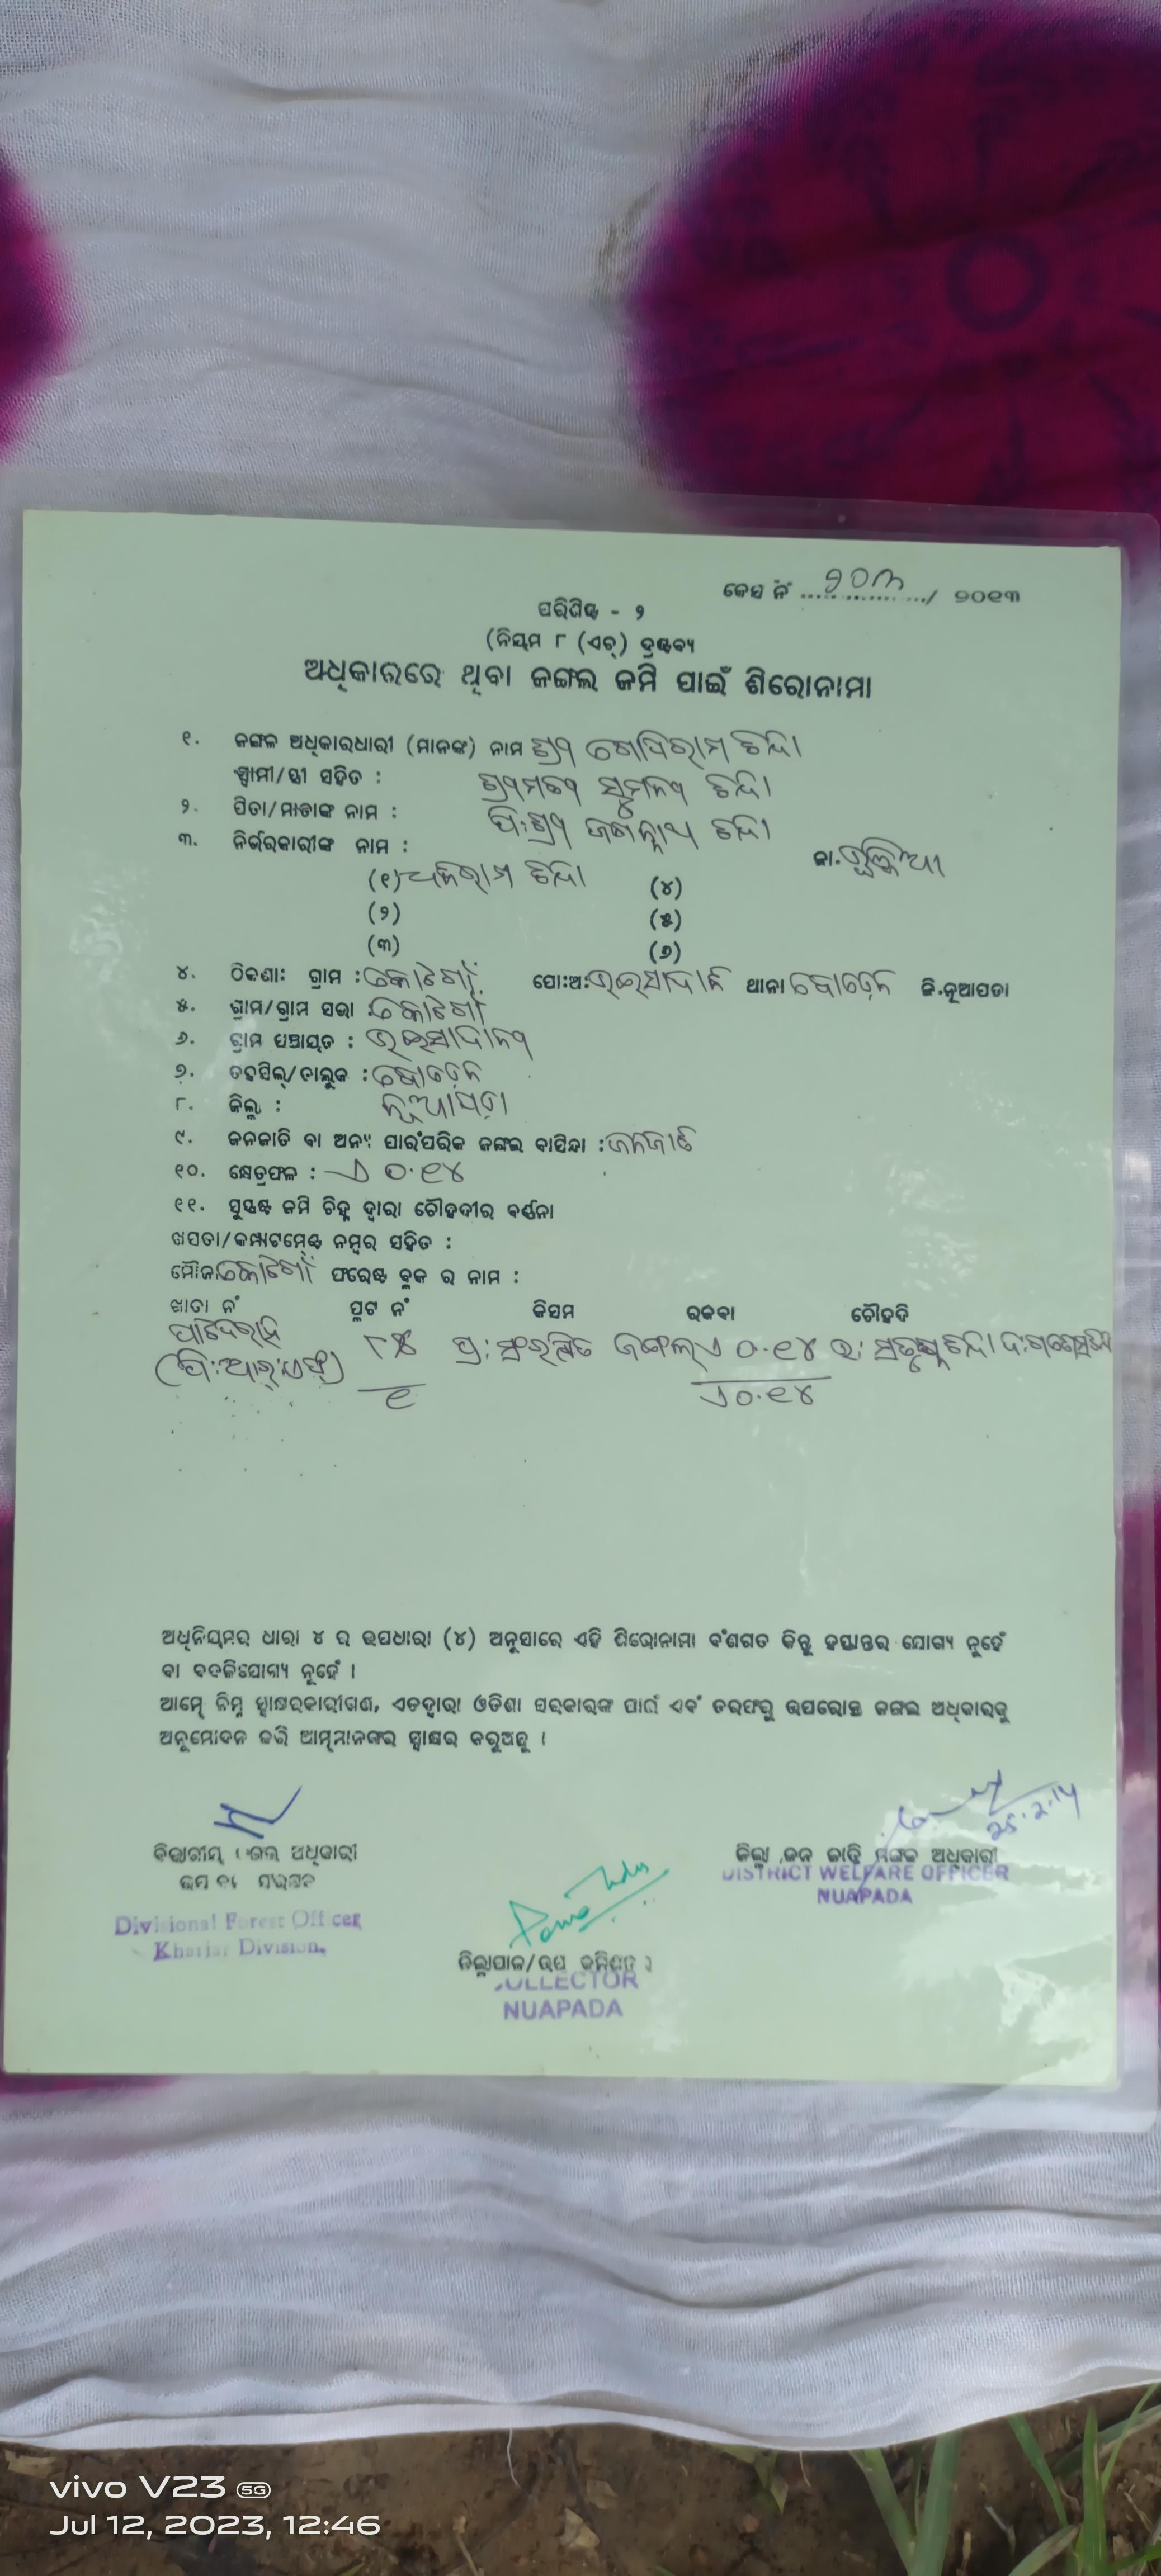 କେସ ନଂ ୨୦୩ / ୨୦୧୩
ପରିଶିଷ୍ଟ - ୨
(ନିୟମ ୮ (ଏଚ୍) ଦ୍ରଷ୍ଟବ୍ୟ
ଅଧିକାରରେ ଥିବା ଜଙ୍ଗଲ ଜମି ପାଇଁ ଶିରୋନାମା
୧. ଜଙ୍ଗଳ ଅଧିକାରଧାରୀ (ମାନଙ୍କ) ନାମ ଶ୍ରୀ ଗୋପିରାମ ଚିନ୍ଦା
ସ୍ୱାମୀ/ସ୍ତ୍ରୀ ସହିତ : ଶ୍ରୀମତୀ ଚିନ୍ଦା
୨. ପିତା/ମାତାଙ୍କ ନାମ : ପି:ଶ୍ରୀ ଜଗନ୍ନାଥ ଚିନ୍ଦା
୩. ନିର୍ଭରକାରୀଙ୍କ ନାମ : ଜା.
(୧) ଚିନ୍ଦା (୪)
(୨) (୫)
(୩) (୬)
୪. ଠିକଣା: ଗ୍ରାମ : କୋଟଗାଁ ପୋ:ଅ: ଭଇସାଦାନି ଥାନା ବୋଡ଼େନ ଜି.ନୂଆପଡା
୫. ଗ୍ରାମ/ଗ୍ରାମ ସଭା : କୋଟଗାଁ
୬. ଗ୍ରାମ ପଞ୍ଚାୟତ : ଭଇସାଦାନୀ
୭. ତହସିଲ୍/ତାଲୁକ : ବୋଡ଼େନ
୮. ଜିଲ୍ଲା : ନୂଆପଡ଼ା
୯. ଜନଜାତି ବା ଅନ୍ୟ ପାରଂପରିକ ଜଙ୍ଗଲ ବାସିନ୍ଦା : ଜନଜାତି
୧୦. କ୍ଷେତ୍ରଫଳ : ଏ ୦.୧୪
୧୧. ସୁସ୍ପଷ୍ଟ ଜମି ଚିହ୍ନ ଦ୍ୱାରା ଚୌହଦୀର ବର୍ଣ୍ଣନା
ଖସଡା/କମ୍ପାଟମେଣ୍ଟ ନମ୍ବର ସହିତ :
ମୌଜା କୋଟଗାଁ ଫରେଷ୍ଟ ବ୍ଲକ ର ନାମ :
ଖାତା ନଂ ପ୍ଲଟ ନଂ କିସମ ରକବା ଚୌହଦି
ପ୍ର: ସଂରକ୍ଷିତ ଜଙ୍ଗଲ ଏ ୦.୧୪ ଉ: ଚିନ୍ଦା ଦ:
(ପି:ଆର୍:ଏଫ୍) ୧ ଏ ୦.୧୪
ଅଧିନିୟମର ଧାରା ୪ ର ଉପଧାରା (୪) ଅନୁସାରେ ଏହି ଶିରୋନାମା ବଂଶଗତ କିନ୍ତୁ ହସ୍ତାନ୍ତର ଯୋଗ୍ୟ ନୁହେଁ
ବା ବଦଳିଯୋଗ୍ୟ ନୁହେଁ ।
ଆମ୍ଭେ ନିମ୍ନ ସ୍ୱାକ୍ଷରକାରୀଗଣ, ଏତଦ୍ୱାରା ଓଡିଶା ସରକାରଙ୍କ ପାଇଁ ଏବଂ ତରଫରୁ ଉପରୋକ୍ତ ଜଙ୍ଗଲ ଅଧିକାରକୁ
ଅନୁମୋଦନ କରି ଆମ୍ଭମାନଙ୍କର ସ୍ୱାକ୍ଷର କରୁଅଛୁ ।
25.2.14
ଅଧିକାରୀ ଜିଲ୍ଲା ଜନ ଜାତି ମଙ୍ଗଳ ଅଧିକାରୀ
DISTRICT WELFARE OFFICER
NUAPADA
Divisional Forest Officer
Khariar Division.
ଜିଲ୍ଲାପାଳ/ଉପ କମିଶନର
COLLECTOR
NUAPADA
vivo V23 5G
Jul 12, 2023, 12:46